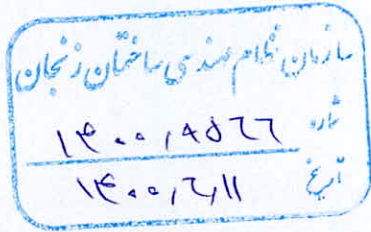 سازمان نظام مهندسی ساختمان زنجان
شماره ۱۴۰۰/۸۵۶۶
تاریخ ۱۴۰۰/۶/۱۱